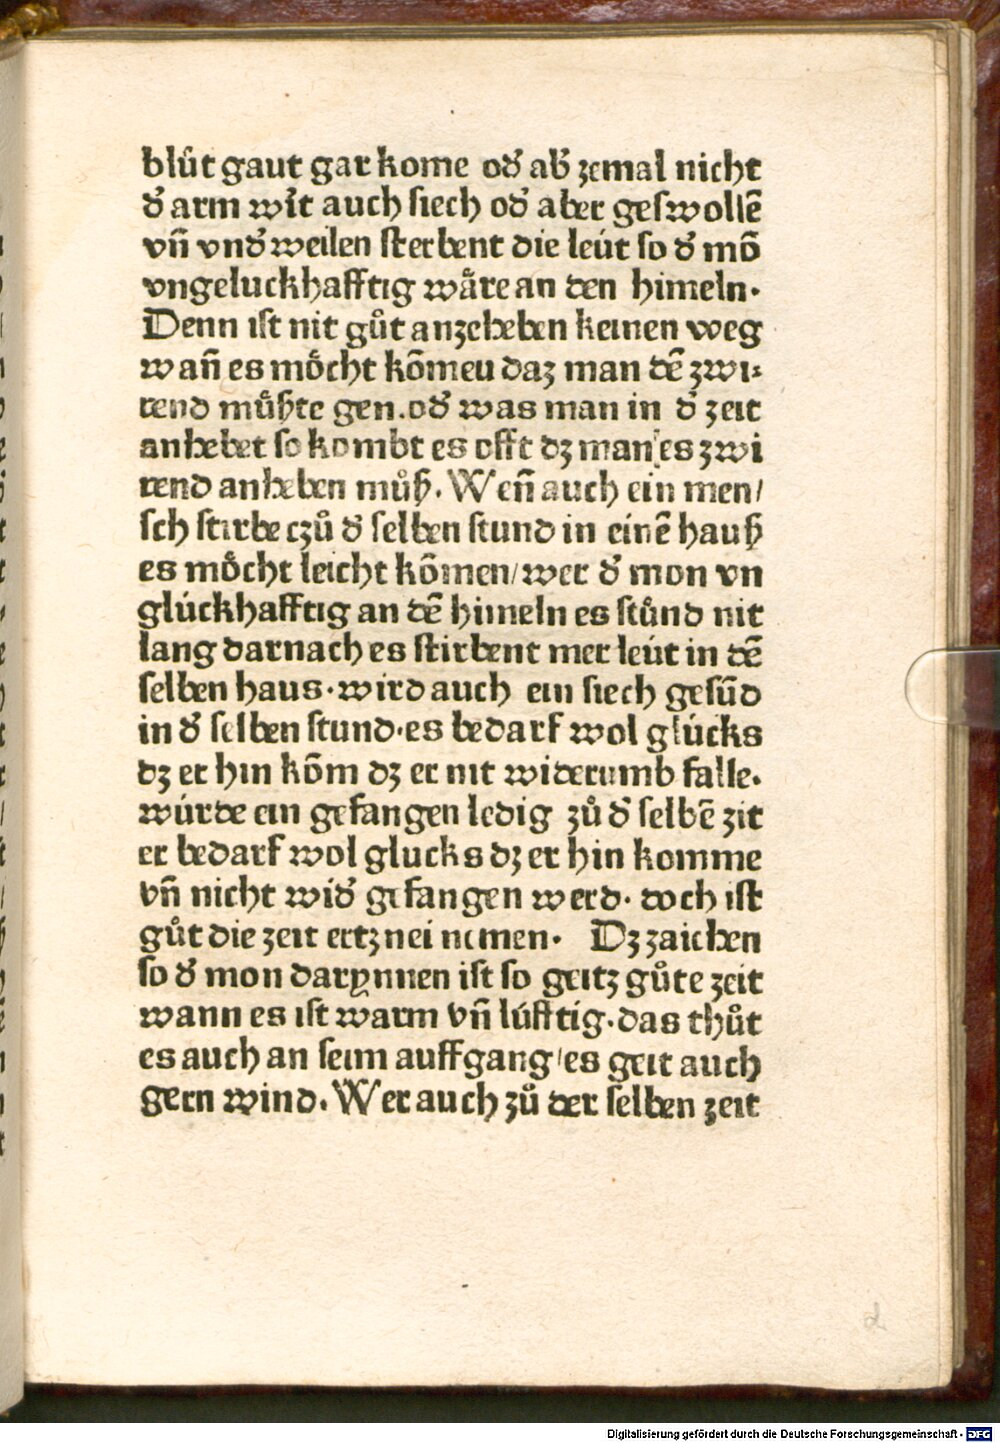 blůt gaut gar kome od̕ ab̕ zemal nicht
d̕ arm wirt auch siech od̕ aber geswollē
vn̄ vnd̕weilen sterbent die leút so d̕ mō
vngeluckhafftig wåre an den himeln.
Denn ist nit gůt anzeheben keinen weg
wan̄ es mo̊cht kōmeu daz man dē zwi⸗
rend můſzte gen. od̕ was man in d̕ zeit
anhebet so kombt es offt dz man es zwi
rend anheben můſz. Wen̄ auch ein men/
sch stirbe czů d̕ selben stund in einē hauſz
es mo̊cht leicht kōmen/wer d̕ mon vn
glúckhafftig an dē himeln es stůnd nit
lang darnach es stirbent mer leút in dē
selben haus. wird auch ein siech gesūd
in d̕ selben stund. es bedarf wol glúcks
dz er hin kōm dz er nit widerumb falle.
wúrde ein gefangen ledig zů d̕ selbē zit
er bedarf wol glucks dz er hin komme
vn̄ nicht wid̕ gefangen werd. doch ist
gůt die zeit ertznei nemen. Dz zaichen
so d̕ mon darynnen ist so geitz gůte zeit
wann es ist warm vn̄ lúfftig. das thůt
es auch an seim auffgang/es geit auch
gern wind. Wer auch zů der selben zeit
d
Digitalisierung gefördert durch die Deutsche Forschungsgemeinschaft - DFG